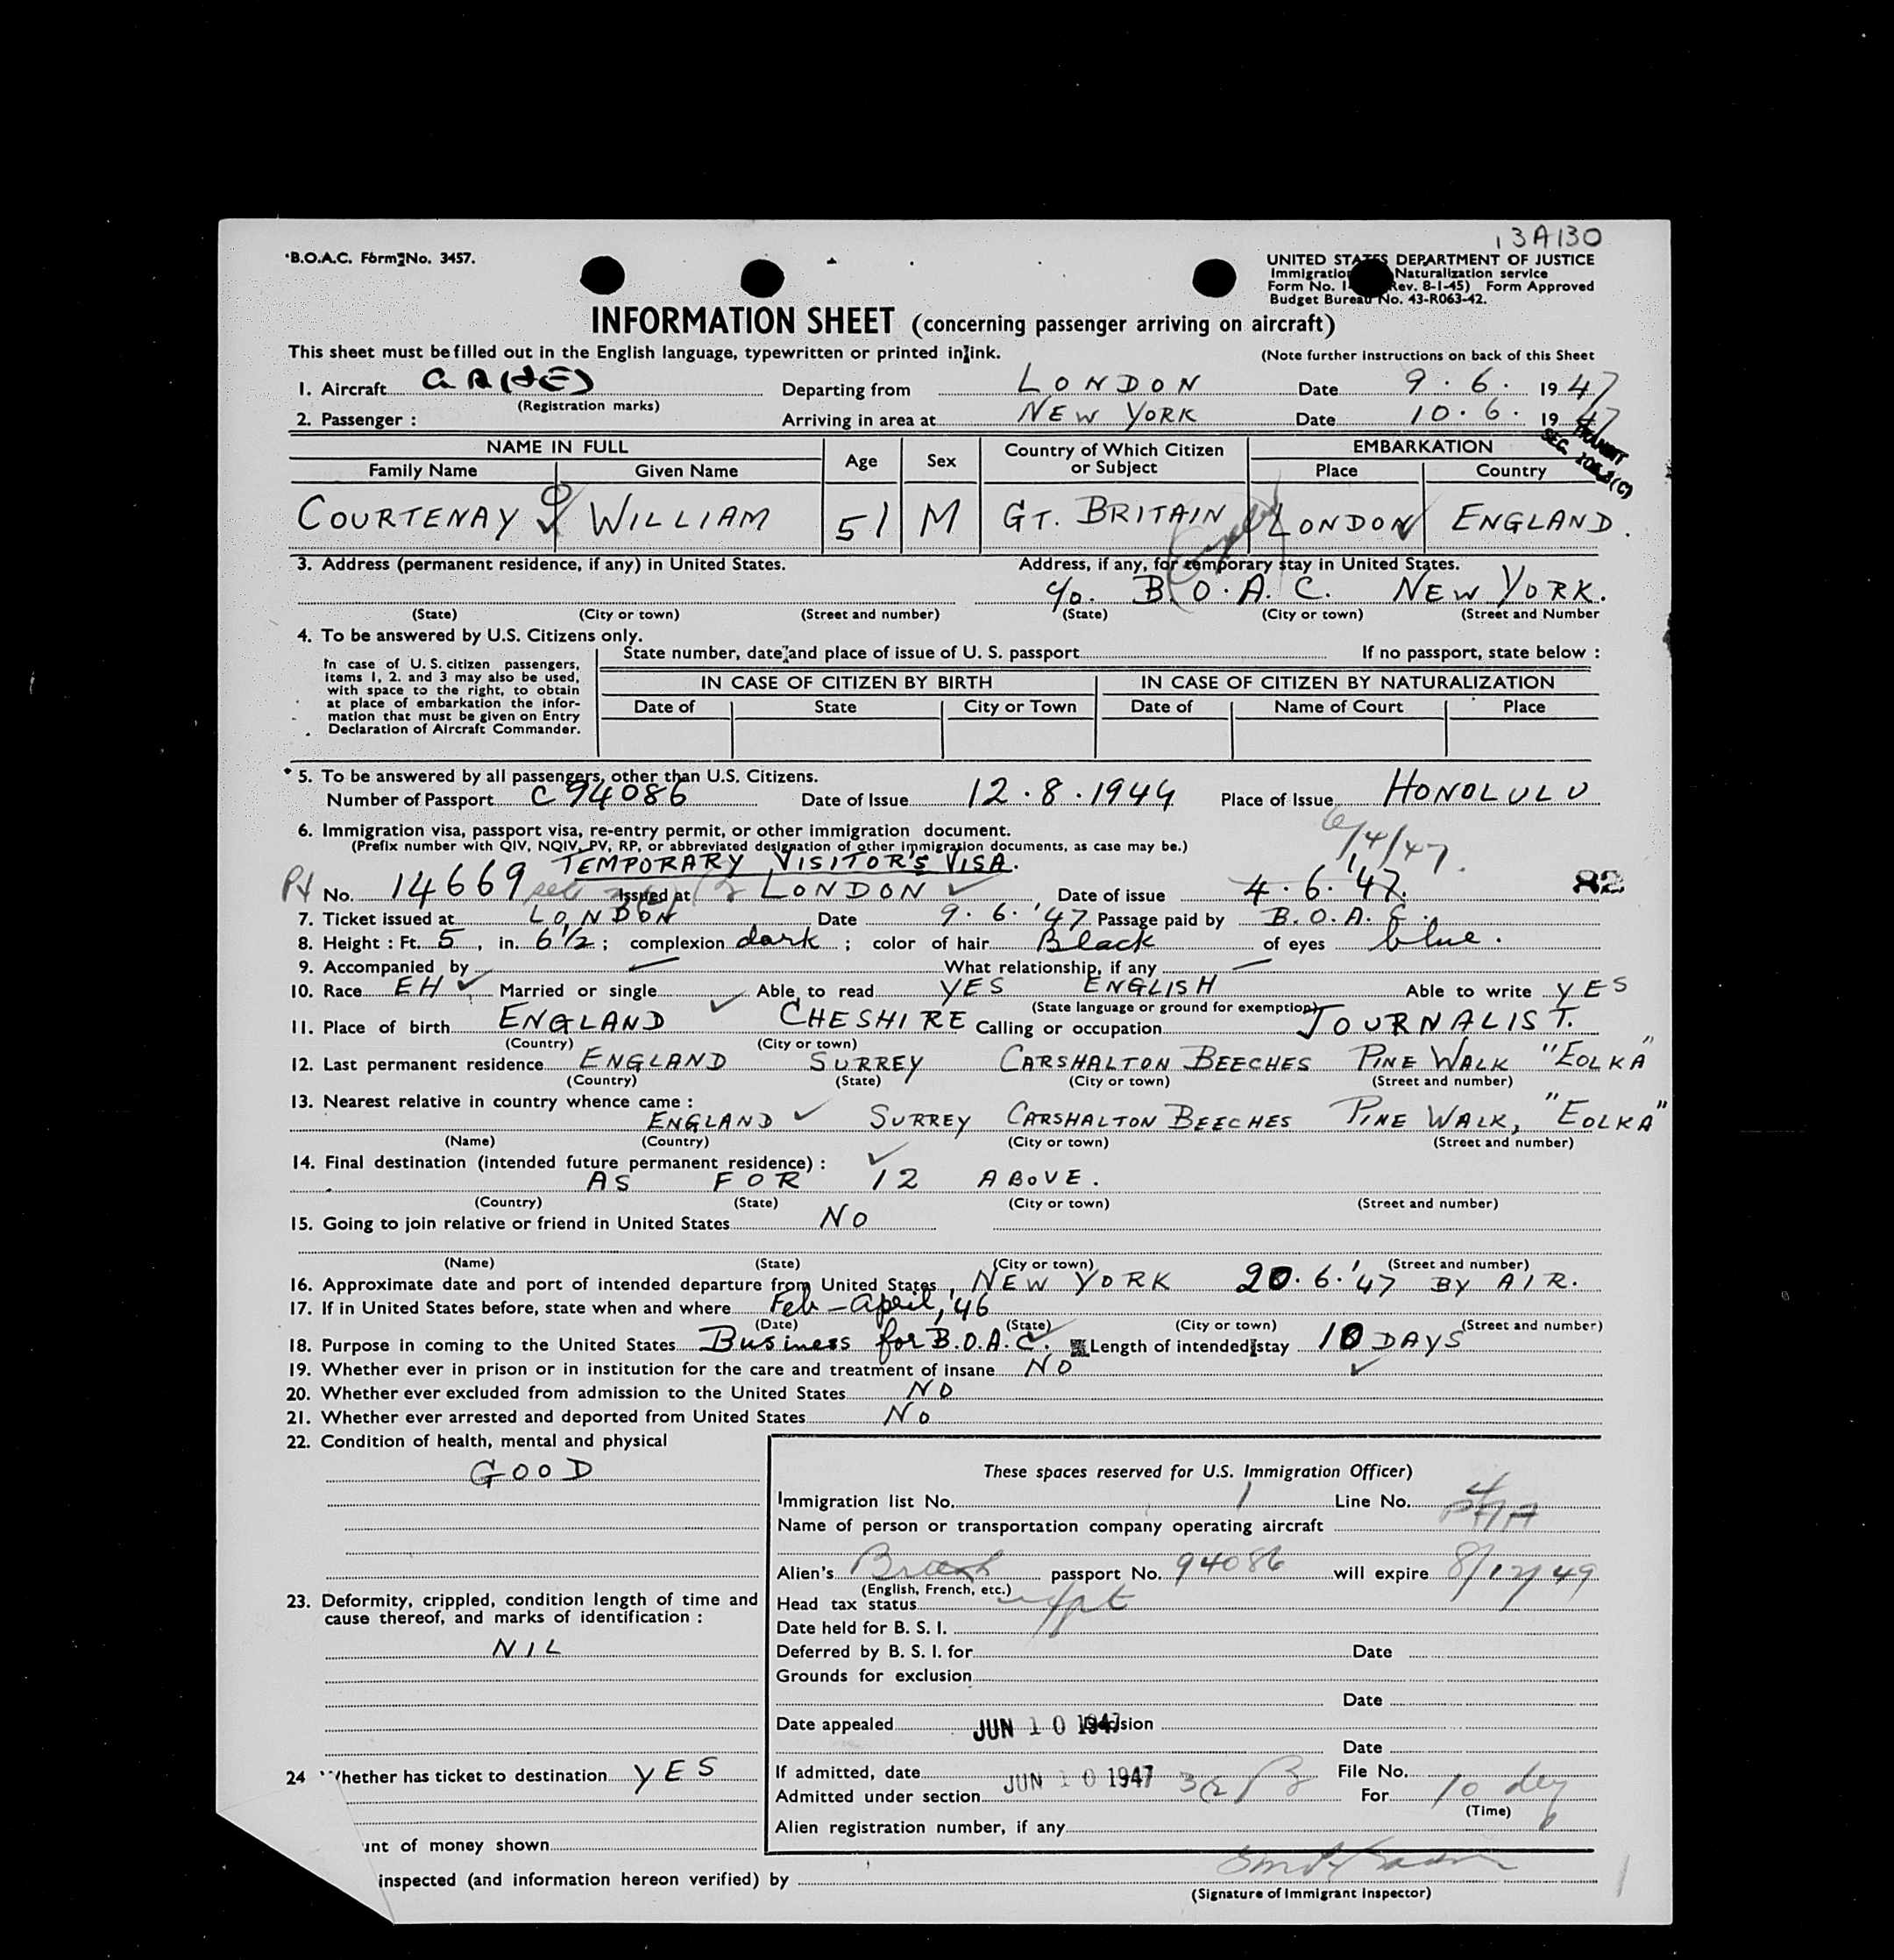 13A130
B.O.A.C. Form No. 3457.
UNITED STATES DEPARTMENT OF JUSTICE
Immigration Naturalization service
Form No. I- Rev. 8-1-45) Form Approved
Budget Bureau No. 43-R063-42.
INFORMATION SHEET (concerning passenger arriving on aircraft)
This sheet must be filled out in the English language, typewritten or printed in ink. (Note further instructions on back of this Sheet
1. Aircraft Departing from LONDON Date 9.6. 1947
(Registration marks)
2. Passenger : Arriving in area at NEW YORK Date 10.6. 1947
TRANSIT
SEC
NAME IN FULL Age Sex Country of Which Citizen or Subject EMBARKATION
Family Name Given Name Place Country
COURTENAY WILLIAM 51 M GT. BRITAIN LONDON ENGLAND.
3. Address (permanent residence, if any) in United States. Address, if any, for temporary stay in United States.
c/o. B.O.A.C. NEW YORK.
(State) (City or town) (Street and number) (State) (City or town) (Street and Number
4. To be answered by U.S. Citizens only.
State number, date and place of issue of U. S. passport If no passport, state below :
In case of U.S. citizen passengers,
items 1, 2. and 3 may also be used,
with space to the right, to obtain
at place of embarkation the infor-
mation that must be given on Entry
Declaration of Aircraft Commander.
IN CASE OF CITIZEN BY BIRTH IN CASE OF CITIZEN BY NATURALIZATION
Date of State City or Town Date of Name of Court Place
5. To be answered by all passengers, other than U.S. Citizens.
Number of Passport C94086 Date of Issue 12.8.1944 Place of Issue HONOLULU
6. Immigration visa, passport visa, re-entry permit, or other immigration document.
6/4/47.
(Prefix number with QIV, NQIV, PV, RP, or abbreviated designation of other immigration documents, as case may be.)
TEMPORARY VISITOR'S VISA.
PV No. 14669 Issued at LONDON Date of issue 4.6.'47. 82
7. Ticket issued at LONDON Date 9.6.'47 Passage paid by B.O.A.C.
8. Height : Ft. 5, in. 6½ ; complexion dark ; color of hair Black of eyes blue.
9. Accompanied by What relationship, if any
10. Race EH Married or single Able to read YES ENGLISH Able to write YES
(State language or ground for exemption)
11. Place of birth ENGLAND CHESHIRE Calling or occupation JOURNALIST.
(Country) (City or town)
12. Last permanent residence ENGLAND SURREY CARSHALTON BEECHES PINE WALK "EOLKA"
(Country) (State) (City or town) (Street and number)
13. Nearest relative in country whence came :
ENGLAND SURREY CARSHALTON BEECHES PINE WALK, "EOLKA"
(Name) (Country) (City or town) (Street and number)
14. Final destination (intended future permanent residence) :
AS FOR 12 ABOVE.
(Country) (State) (City or town) (Street and number)
15. Going to join relative or friend in United States NO
(Name) (State) (City or town) (Street and number)
16. Approximate date and port of intended departure from United States, NEW YORK 20.6.'47 BY AIR.
17. If in United States before, state when and where Feb - April, '46
(Date) (State) (City or town) (Street and number)
18. Purpose in coming to the United States Business for B.O.A.C. Length of intended stay 10 DAYS
19. Whether ever in prison or in institution for the care and treatment of insane NO
20. Whether ever excluded from admission to the United States NO
21. Whether ever arrested and deported from United States NO
22. Condition of health, mental and physical
GOOD
These spaces reserved for U.S. Immigration Officer)
Immigration list No. 1 Line No. 4
Name of person or transportation company operating aircraft
Alien's British passport No. 94086 will expire 8/12/49
(English, French, etc.)
23. Deformity, crippled, condition length of time and
cause thereof, and marks of identification :
NIL
Head tax status
Date held for B. S. I.
Deferred by B. S. I. for Date
Grounds for exclusion
Date
Date appealed JUN 10 1947 Decision
Date
24 Whether has ticket to destination YES
If admitted, date JUN 10 1947 File No.
Admitted under section 3(2) For 10 dey
(Time)
Alien registration number, if any
unt of money shown
inspected (and information hereon verified) by
(Signature of Immigrant Inspector)